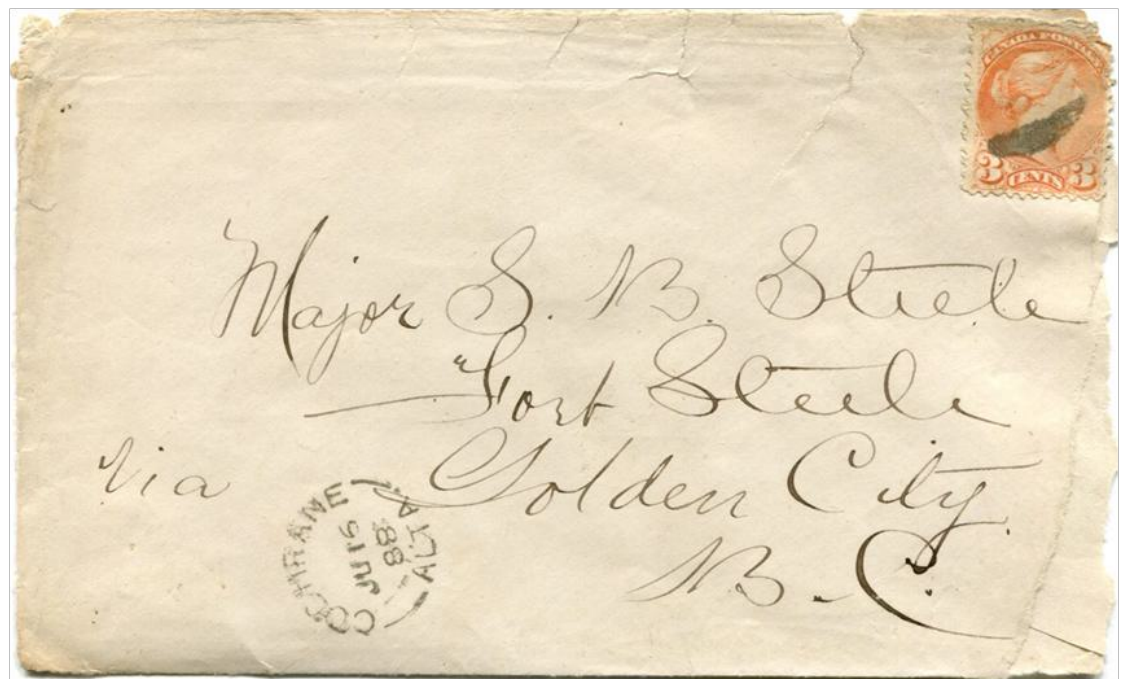 CANADA POSTAGE
3 CENTS 3
Major S. B. Steele
"Fort Steele
via Golden City
B. C.
COCHRANE
JU 16
88
ALTA